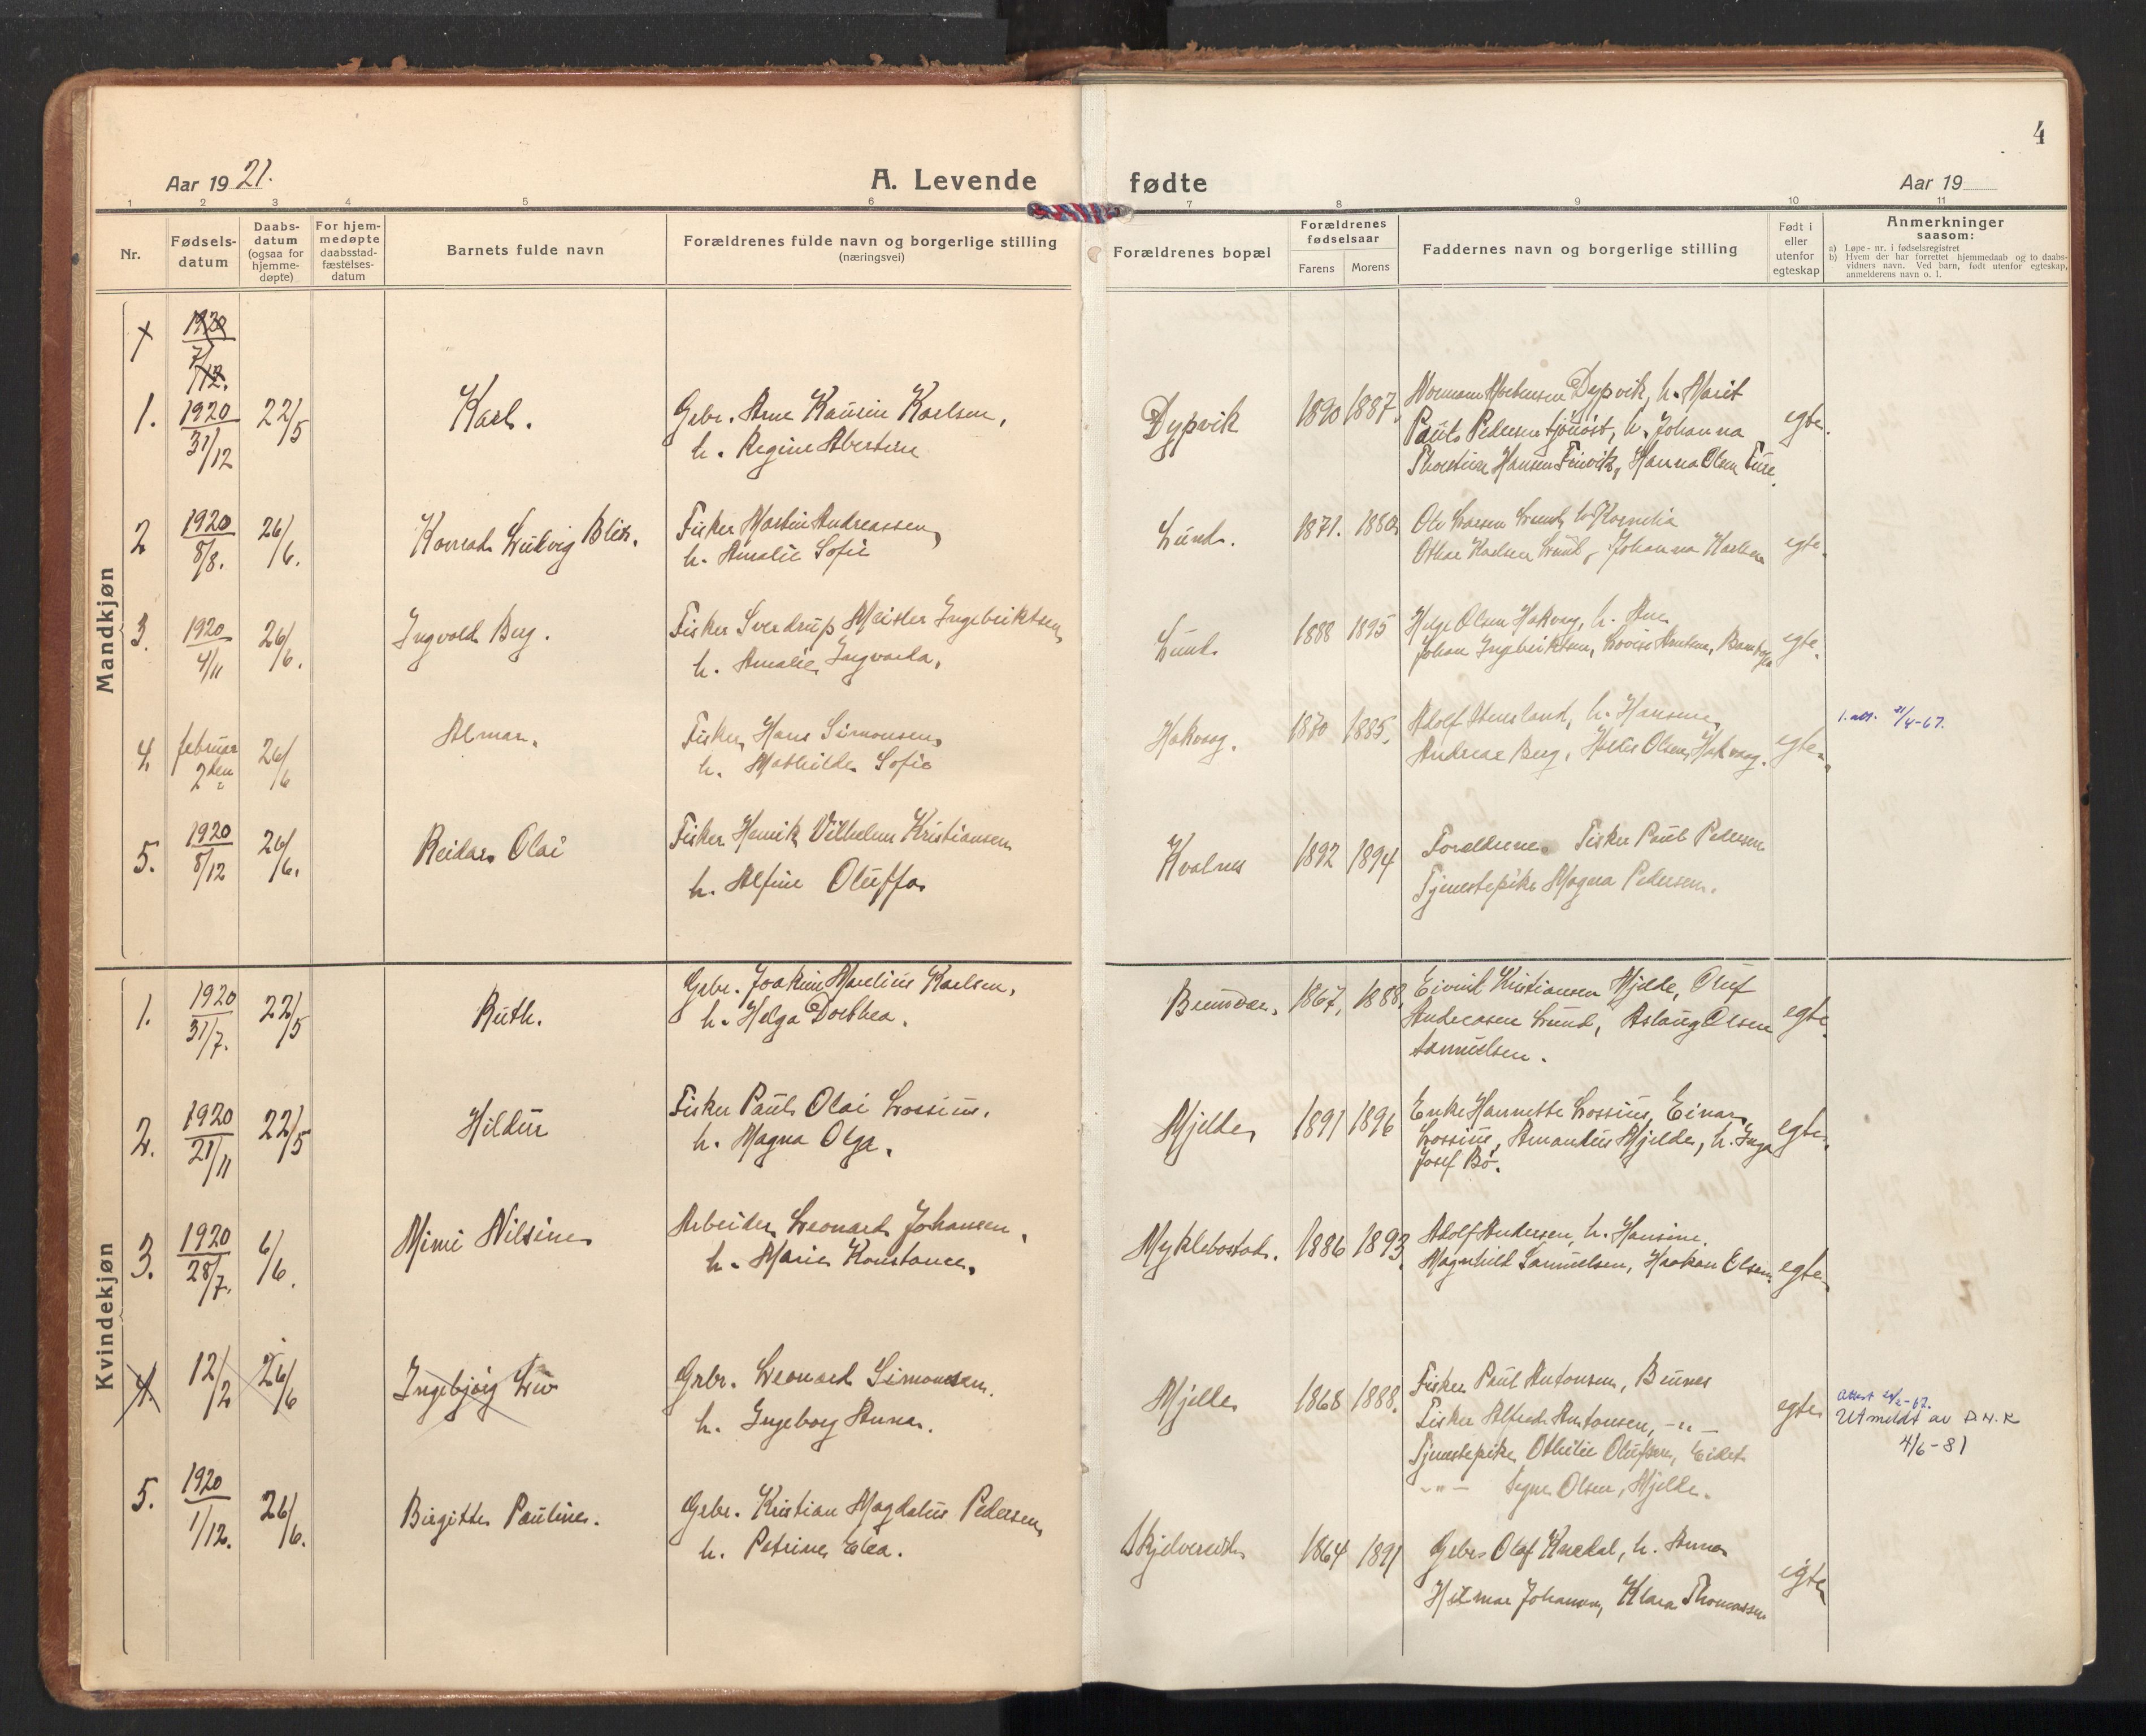 4
Aar 19 21.
A. Levende
fødte
Aar 19
1 2 3 4 5 6 7 8 9 10 11
Nr.
Fødsels-
datum
Daabs-
datum
(ogsaa for
hjemme-
døpte)
For hjem-
medøpte
daabsstad-
fæstelses-
datum
Barnets fulde navn
Forældrenes fulde navn og borgerlige stilling
(næringsvei)
Forældrenes bopæl
Forældrenes
fødselsaar
Farens Morens
Faddernes navn og borgerlige stilling
Født i
eller
utenfor
egteskap
Anmerkninger
saasom:
a) Løpe-nr. i fødselsregistret
b) Hvem der har forrettet hjemmedaab og to daabs-
vidners navn. Ved barn, født utenfor egteskap,
anmelderens navn o. l.
Mandkjøn
1920
7/12.
1. 1920 31/12 22/5 Karl.
Gbr. Arne Kausin Karlsen,
h. Regine Albertine
Dypvik 1890 1887.
Normann Mortensen Dypvik, h. Marit
Paul Pedersen, h. Johanna
Hansen Finvik, Hanna Olsen
egte.
2 1920 8/8. 26/6. Konrad Ludvig Blix.
Fisker Martin Andreassen,
h. Amalie Sofie
Lund. 1871. 1880
Ole Larsen Lund, h. Kornelia
Othar Karlsen Lund, Johanna Karlsen
egte.
3. 1920 4/11 26/6. Ingvald Berg.
Fisker Sverdrup Meisler Ingebriktsen,
h. Amalie Ingvarda.
Lund. 1888 1895
Helge Olsen Hakvaag, h. Ane
Johan Ingebriktsen, Lovise Arntsen,
egte.
4. februar 2den 26/6 Almar.
Fisker Hans Simonsen,
h. Mathilde Sofie
Hakvaag. 1870 1885.
Adolf, h. Hansine
Andreas Berg, Olsen, Hakvaag.
egte.
4-67.
5. 1920 8/12 26/6. Reidar Olai
Fisker Henrik Vilhelm Kristiansen
h. Alfine Oluffa
Kvalnes 1892 1894
Foreldrene. Fisker Paul Pedersen
Tjenestepike Magna Pedersen.
Kvindekjøn
1. 1920 31/7. 22/5 Ruth.
Gbr. Joakim Marelius Karlsen,
h. Helga Dorthea.
1867, 1888.
Eivind Kristiansen Mjelde, Oluf
Andreasen Lund, Aslaug Olsen
Samuelsen.
egte.
2. 1920 21/11 22/5 Hildur
Fisker Paul Olai Lossius.
h. Magna Olga.
Mjelde 1891 1896
Enke Hannette Lossius, Einar
Lossius, Amandus Mjelde, h. Inga
Josef Bö.
egte.
3. 1920 28/7. 6/6. Mimi Nilsine
Arbeider Leonard Johansen,
h. Marie Konstance,
Myklebostad. 1886 1893.
Adolf Andersen, h. Hansine.
Magnhild Samuelsen, Haakon Elsen
egte
4. 12/2 26/6 Ingebjörg Liv
Grbr. Leonard Simonsen.
h. Ingeborg Anna.
Mjelde 1868 1888.
Fisker Paul Antonsen, Bunes
Fisker Alfred Antonsen, -"-
Tjenestepike Othilie Olufsen, Eidet
-"- Signe Olsen, Mjelde.
egte
Attest
Utmeldt av D.N.K
4/6-81
5. 1920 1/12. 26/6. Birgitte Pauline.
Grbr. Kristian Magdalus Pedersen,
h. Petrine Elea.
1864 1891
Gbr. Olaf, h. Anna
Hilmar Johansen, Klara Thomassen
egte